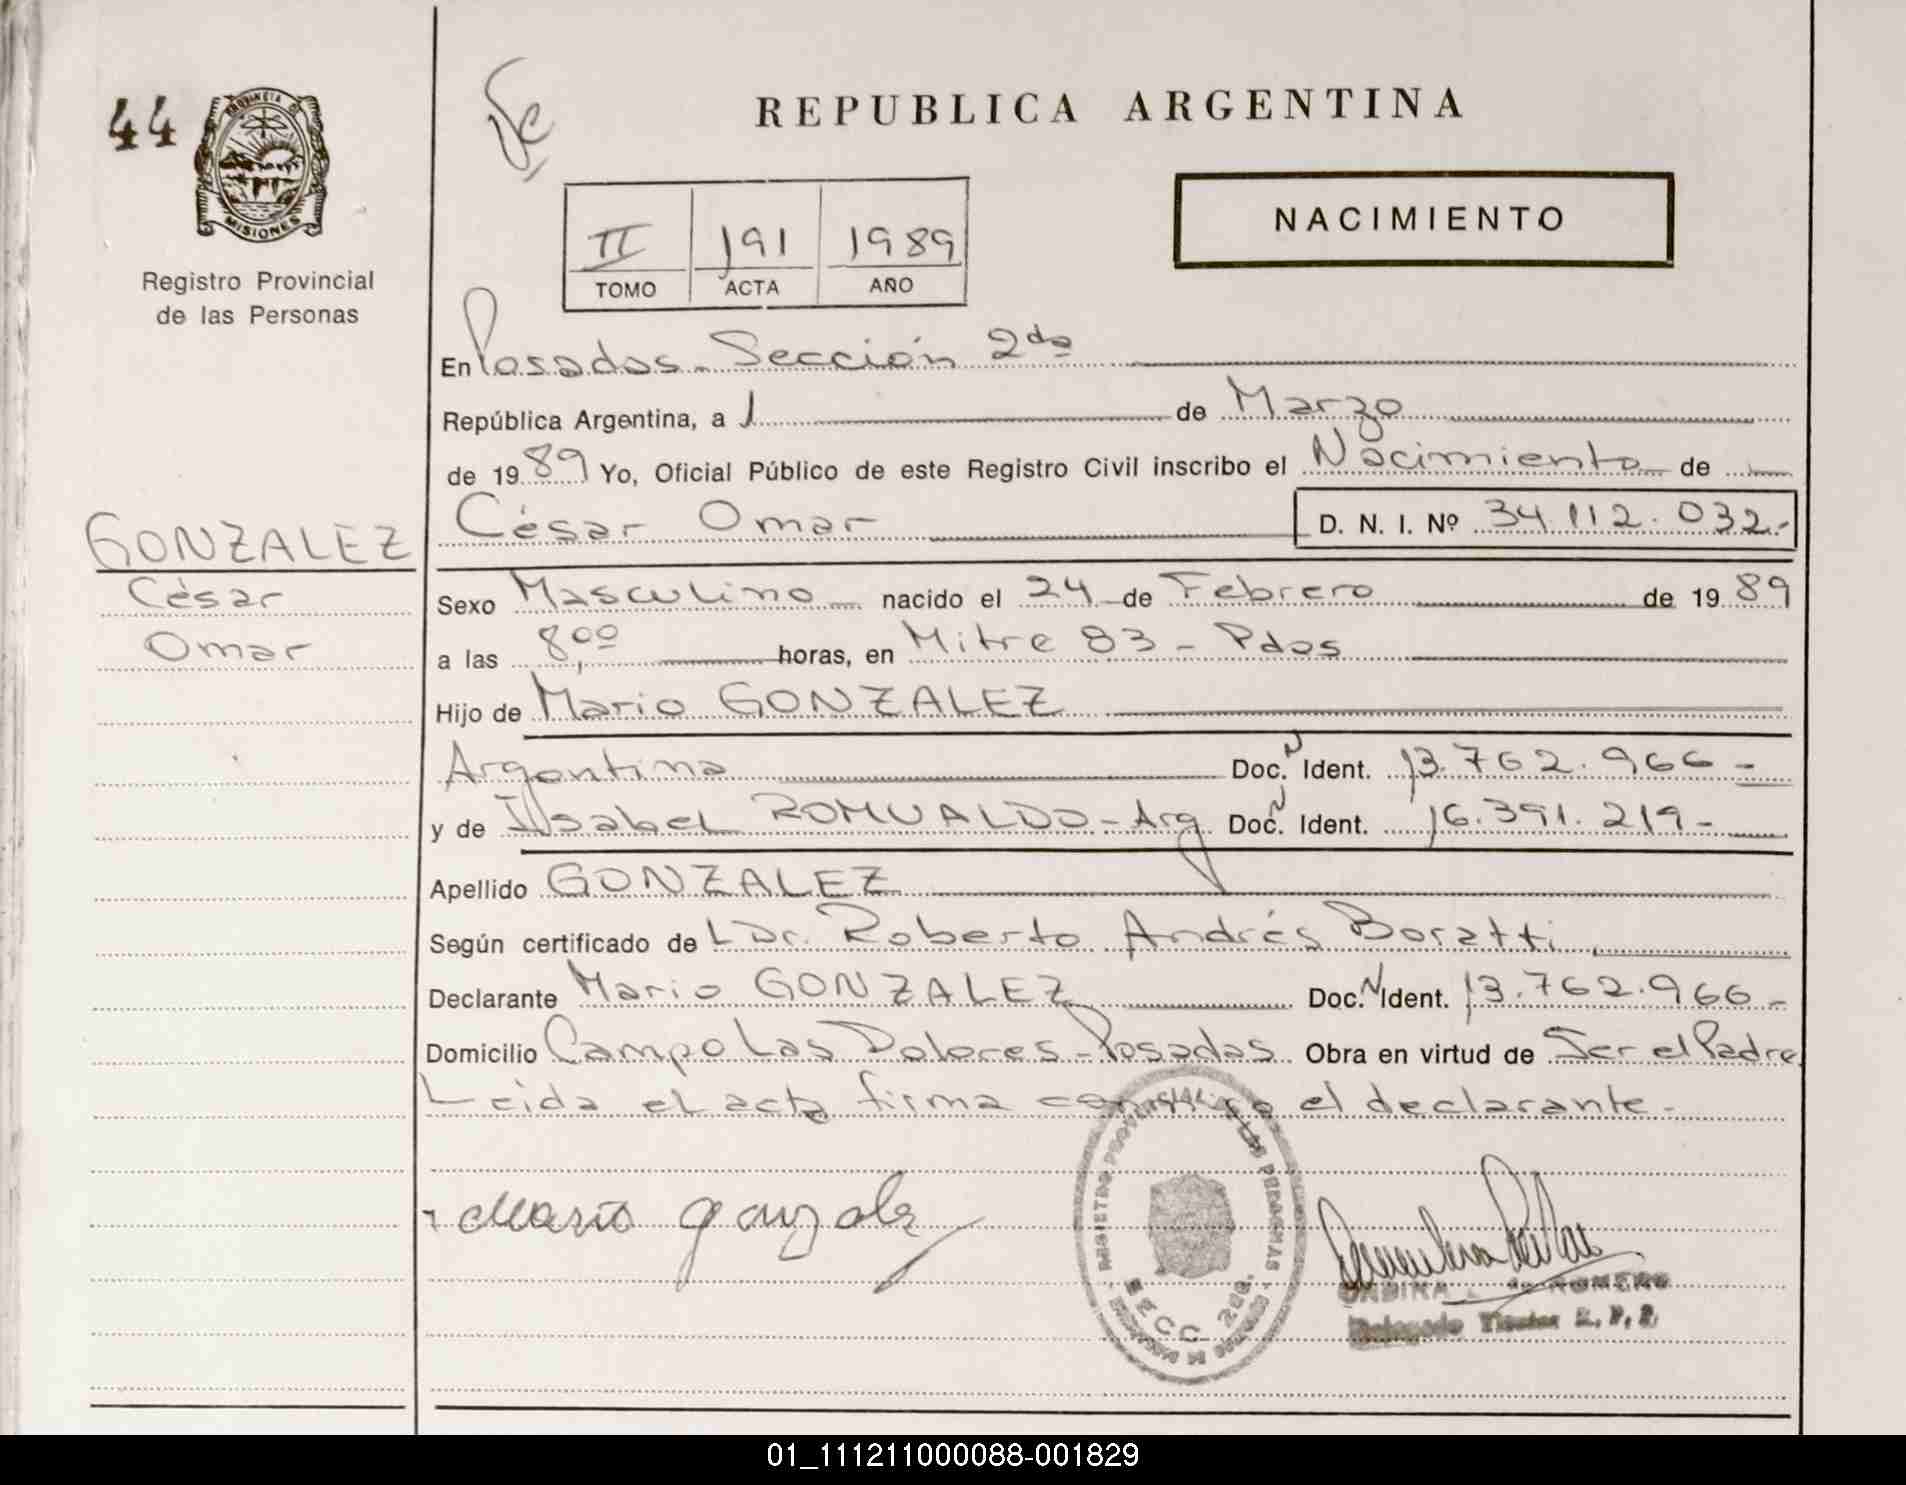 44
PROVINCIA DE
MISIONES
Registro Provincial
de las Personas
REPUBLICA ARGENTINA
NACIMIENTO
II 191 1989
TOMO ACTA AÑO
En Posadas - Sección 2da
República Argentina, a 1 de Marzo
de 1989 Yo, Oficial Público de este Registro Civil inscribo el Nacimiento de
GONZALEZ
César
Omar
César Omar D. N. I. Nº 34.112.032.-
Sexo Masculino nacido el 24 de Febrero de 1989
a las 8,00 horas, en Mitre 83 - Pdas
Hijo de Mario GONZALEZ
Argentina Doc. N Ident. 13.762.966 -
y de Isabel ROMUALDO - Arg Doc. N Ident. 16.391.219 -
Apellido GONZALEZ
Según certificado de L Dr. Roberto Andrés Boratti
Declarante Mario GONZALEZ Doc. N Ident. 13.762.966 -
Domicilio Campo Las Dolores - Posadas Obra en virtud de Ser el Padre
Leida el acta firma conmigo el declarante -
Mario Gonzalez
REGISTRO PROVINCIAL DE LAS PERSONAS
SECC. 2da.
de ROMERO
Delegado Titular R. P. P.
01_111211000088-001829